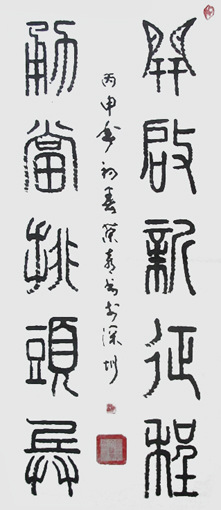 開啟新征程
勇當排頭兵
丙申年初春 書於深圳